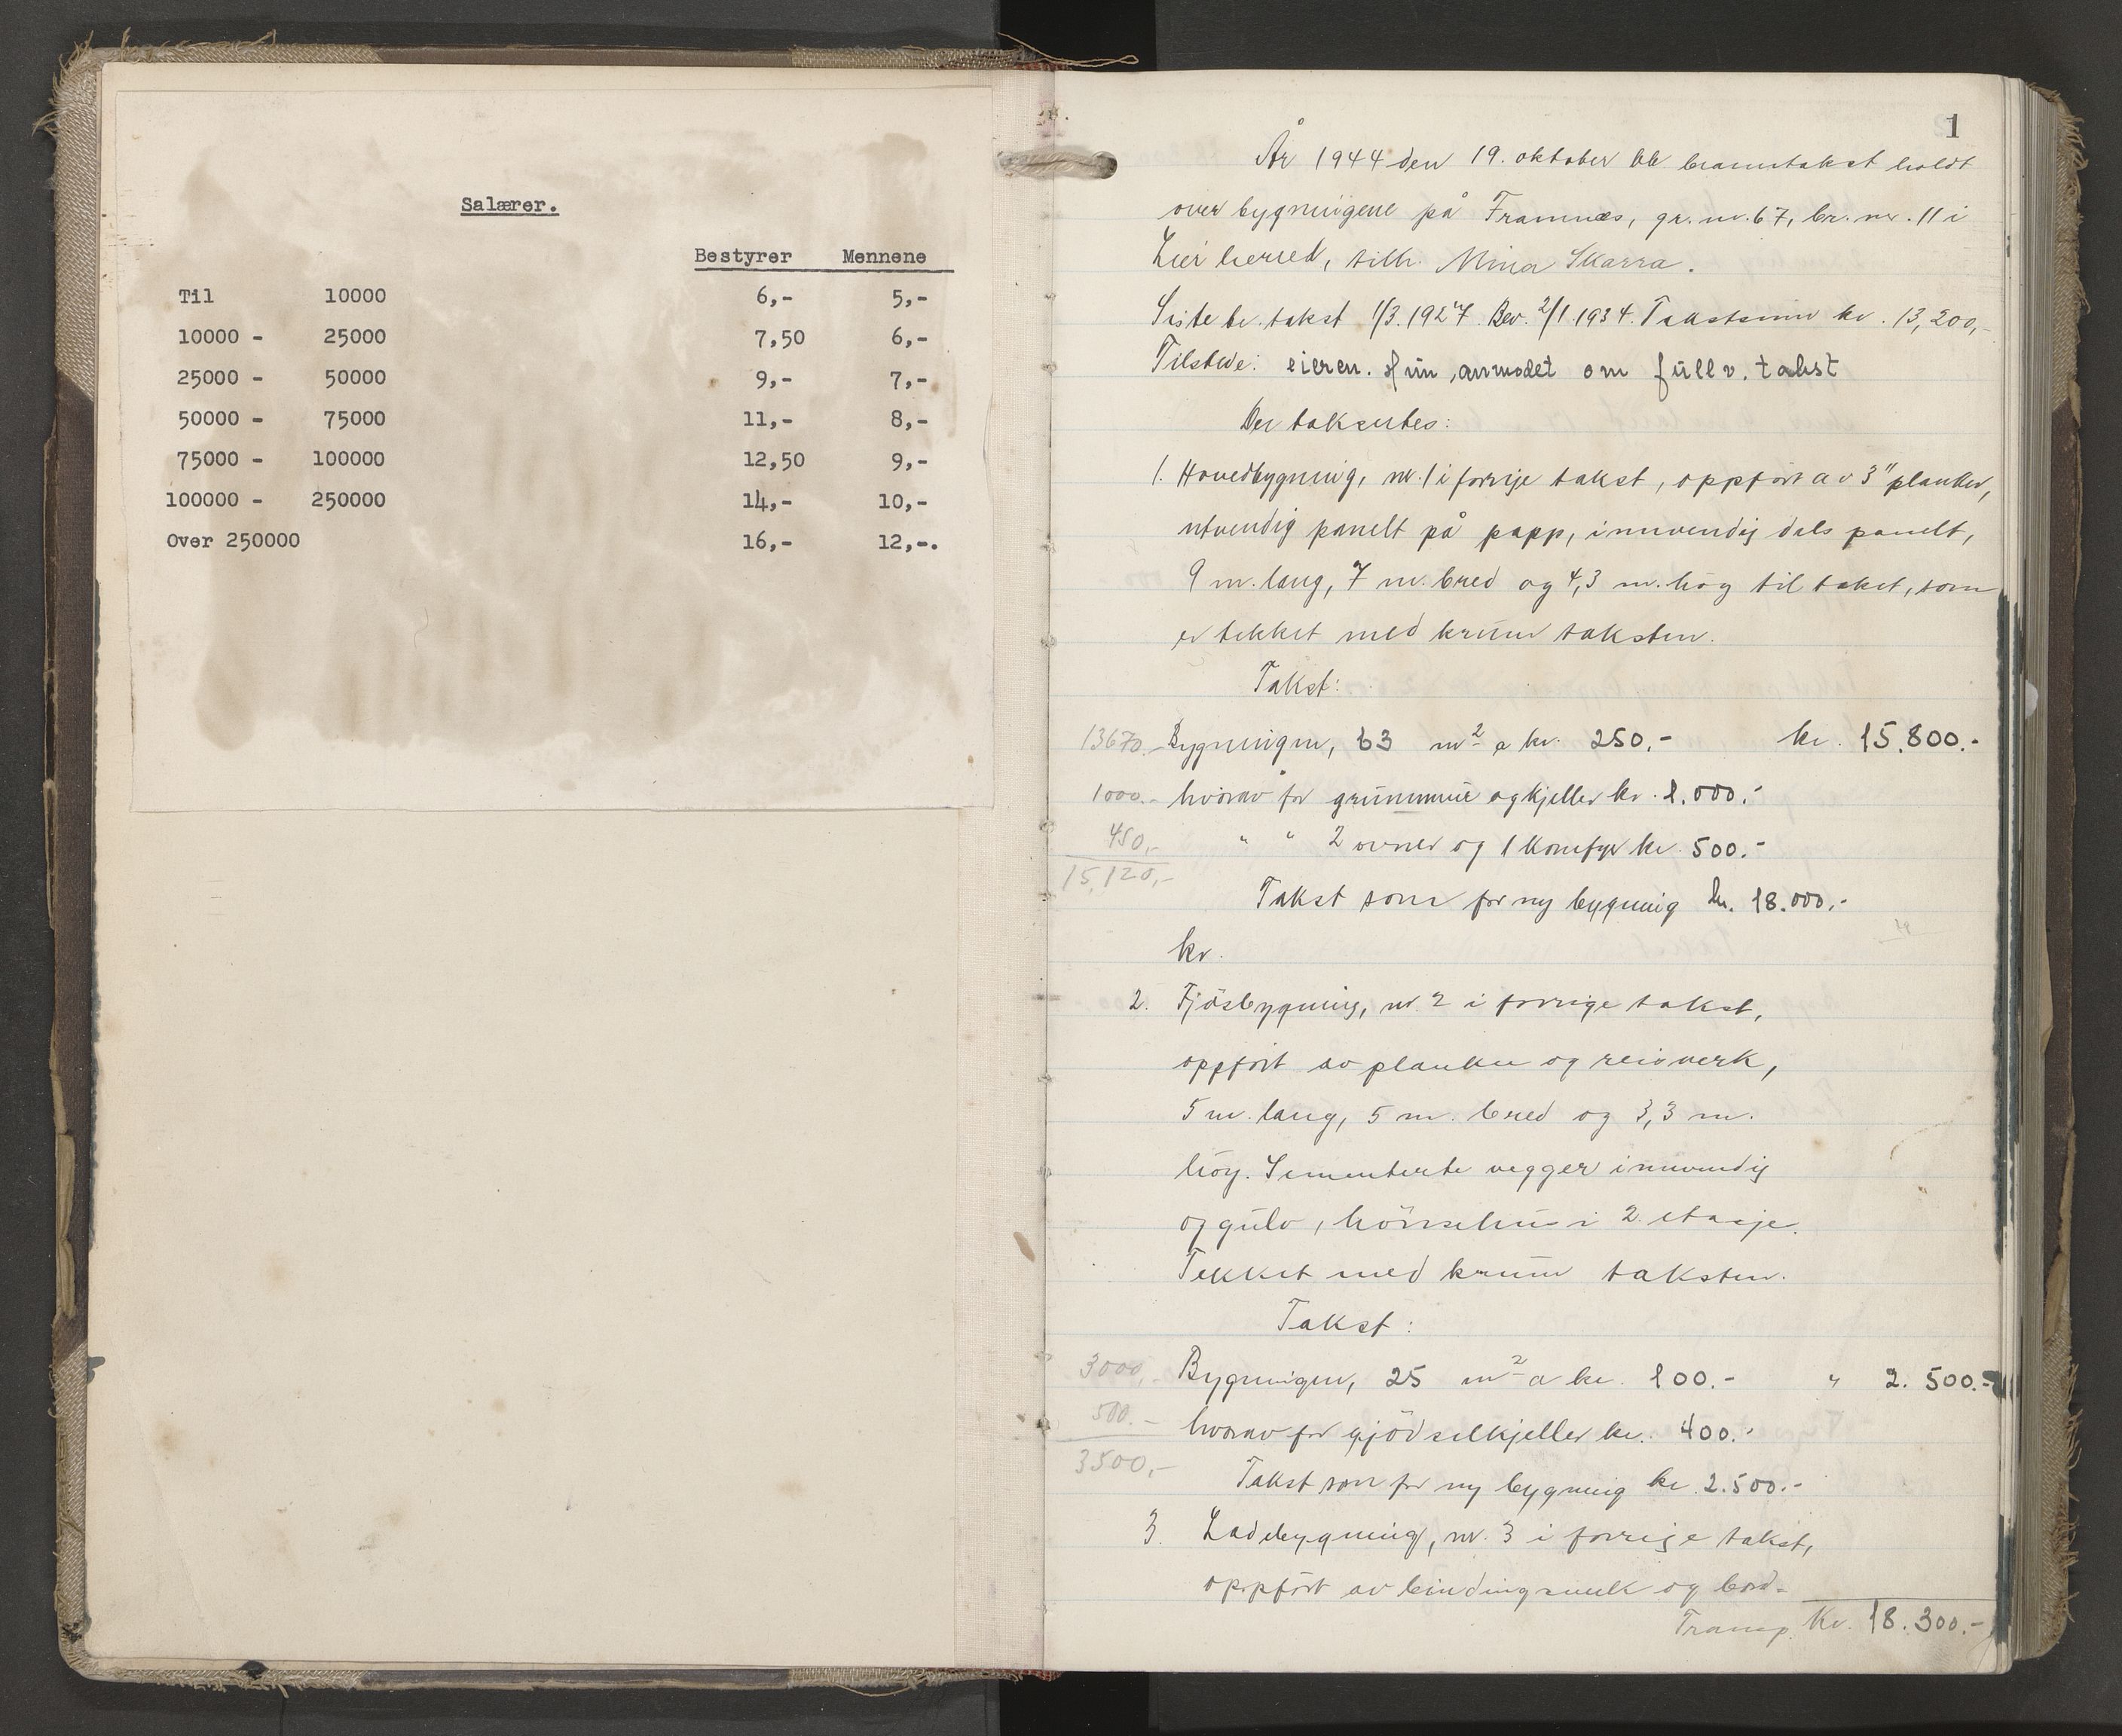 Salærer.
Bestyrer Mennene
Til 10000 6,- 5,-
10000 - 25000 7,50 6,-
25000 - 50000 9,- 7,-
50000 - 75000 11,- 8,-
75000 - 100000 12,50 9,-
100000 - 250000 14,- 10,-
Over 250000 16,- 12,-.
1
År 1944 den 19. oktober ble branntakst holdt
over bygningene på Framnæs, gr. nr. 67, br. nr. 11 i
Lier herred, tilh. Mina Skarra.
Siste br. takst 1/3.1927. Bev. 2/1.1934. Takstsum kr. 13,200,-
Tilstede: eieren. Hun anmodet om fullv. takst
Der taksertes:
1. Hovedbygning, nr. 1 i forrige takst, oppfört av 3" planker,
utvendig panelt på papp, innvendig dels panelt,
9 m. lang, 7 m. bred og 4,3 m. hög til taket, som
er tekket med krum taksten.
Takst:
13670.- Bygningen, 63 m² a kr. 250.- kr. 15.800.-
1000.- hvorav for grunnmur og kjeller kr. 1.000.-
450,- " " 2 ovner og 1 komfyr kr. 500.-
15,120,-
Takst som for ny bygning kr. 18.000.-
kr.
2. Fjösbygning, nr. 2 i forrige takst,
oppfört av planker og reisverk,
5 m. lang, 5 m. bred og 3,3 m.
höy. Sementerte vegger innvendig
og gulv, hönsehus i 2. etasje.
Tekket med krum taksten.
Takst:
3000,- Bygningen, 25 m² a kr. 100.- " 2.500.-
500.- hvorav for gjödselkjeller kr. 400.-
3500,-
Takst som for ny bygning kr. 2.500.-
3. Ladebygning, nr. 3 i forrige takst,
oppfört av bindingsverk og bord-
Transp. Kr. 18.300.-